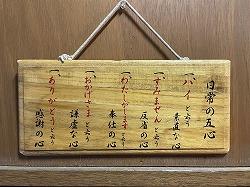 日常の五心
一、ハイ という 素直な心
一、すみません という 反省の心
一、わたしがします という 奉仕の心
一、おかげさま という 謙虚な心
一、ありがとう という 感謝の心